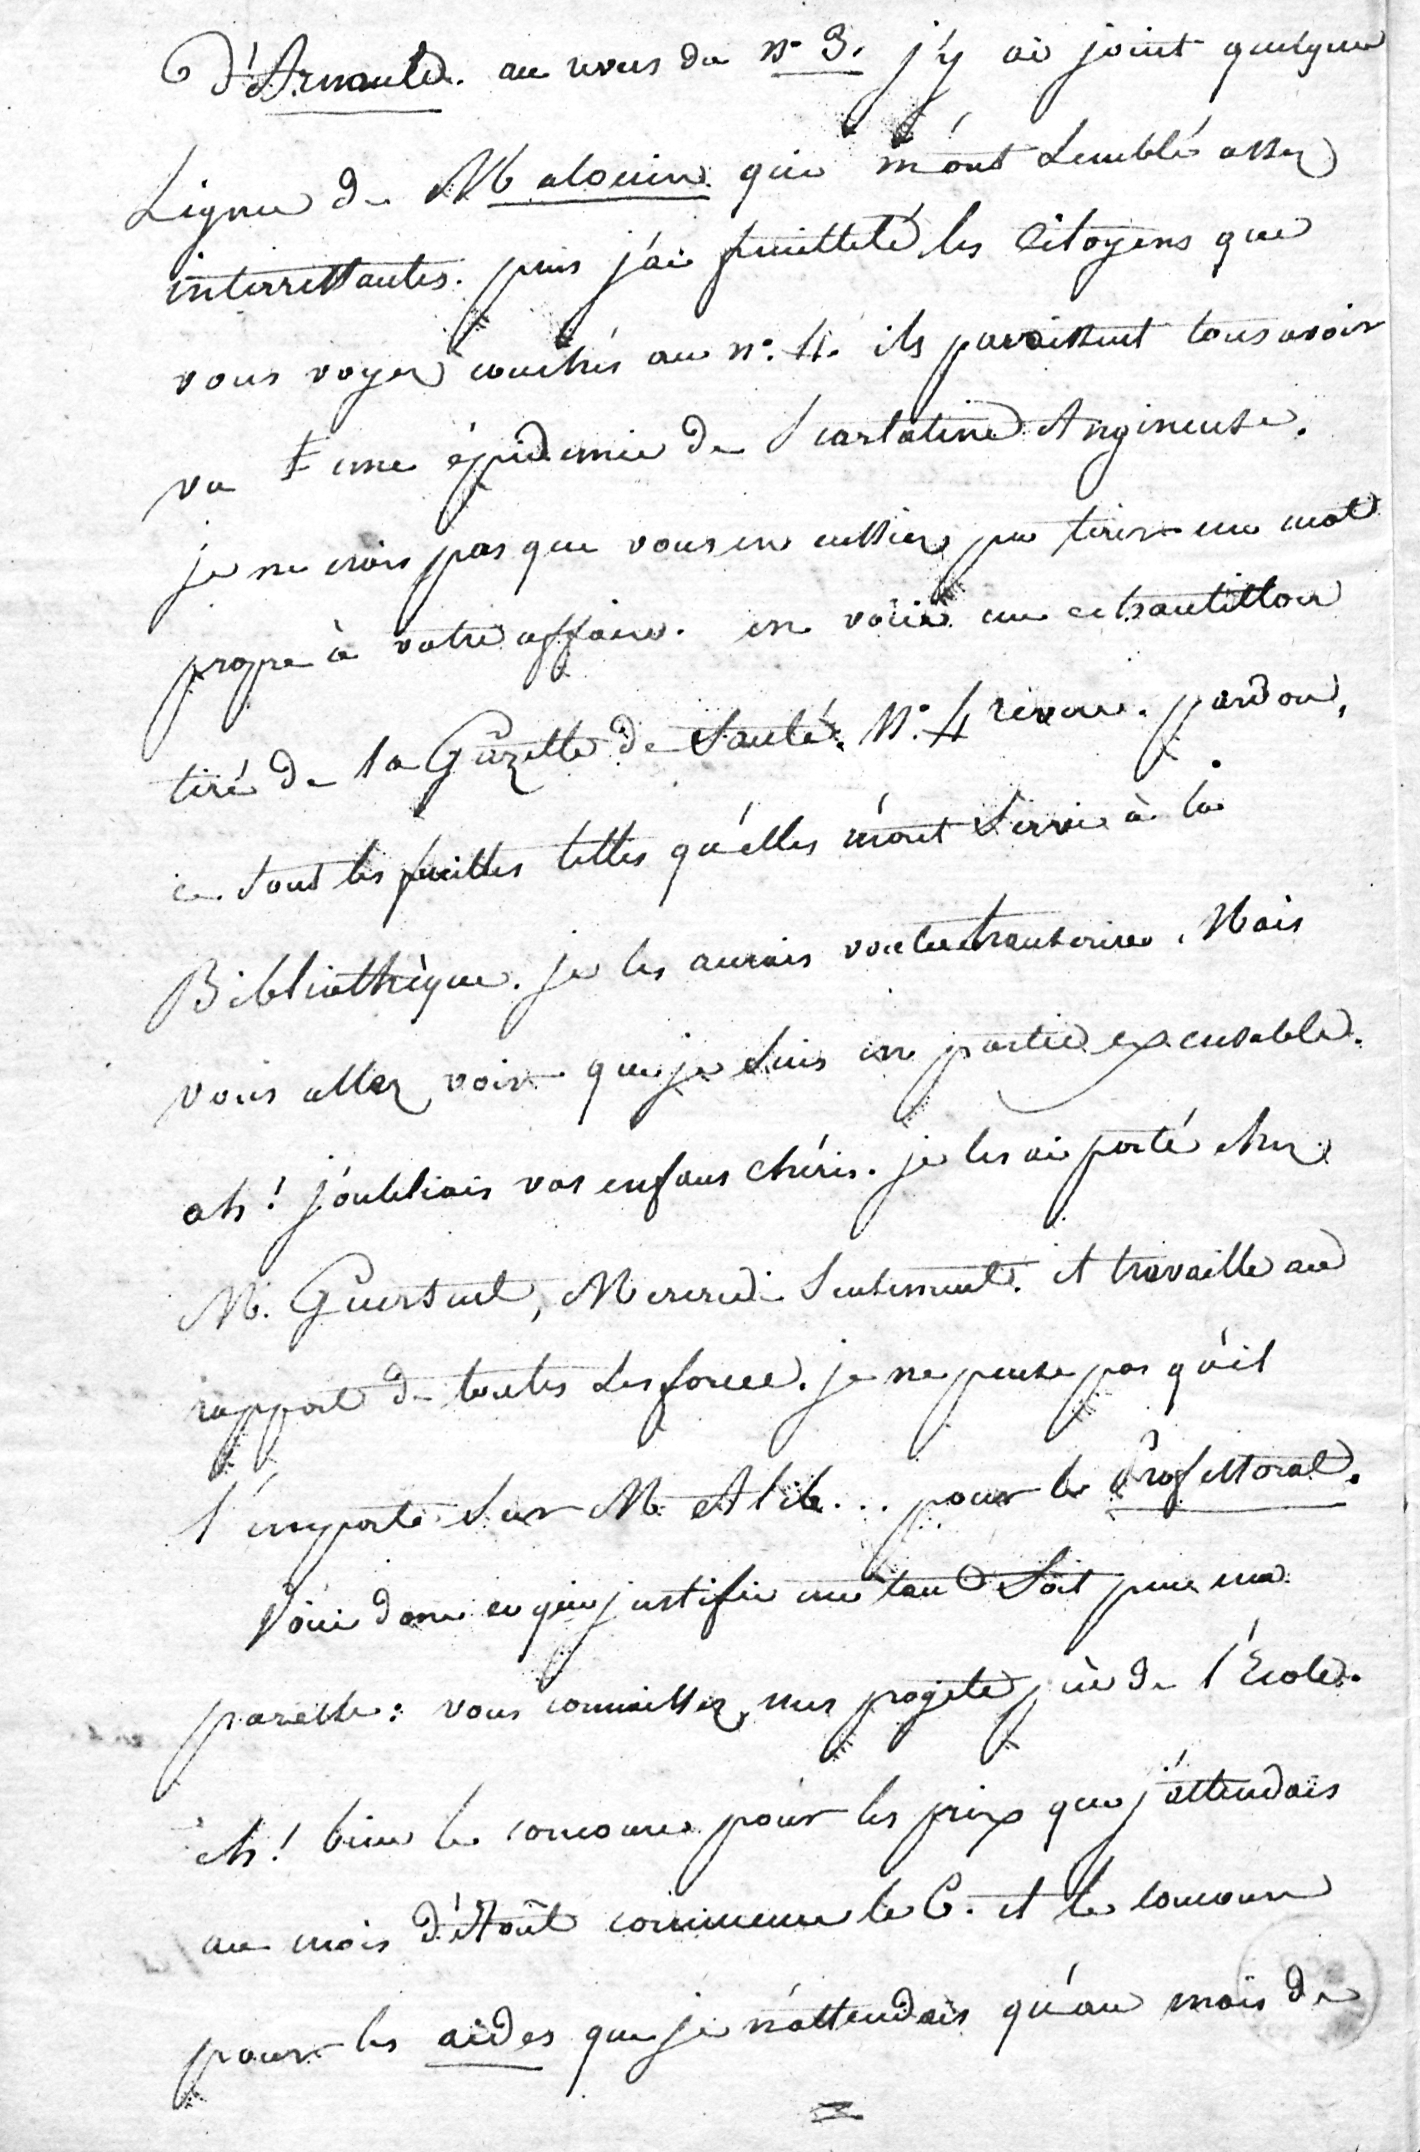 d'Arnauld. au revers du N° 3. j'y ai joint quelques
Lignes de Malouin qui m'ont semblé assez
interressantes. puis j'ai feuilleté les Citoyens que
vous voyez couchés au n°. 4. ils paraissent tous avoir
vu une épidemie de Scarlatine Angineuse.
je ne crois pas que vous en eussiez pu tirer un mot
propre à votre affaire. en voici un echantillon
tiré de la Gazette de Santé. N°. 4 revers. pardon,
ce sont les feuilles telles qu'elles m'ont servi à la
Bibliothèque. je les aurais voulu transcrire. Mais
vous allez voir que je suis en partie excusable.
ah! j'oubliais vos enfans chéris. je les ai porté chez
M. Guersent, Mercredi seulement. il travaille au
rapport de toutes ses forces. je ne pense pas qu'il
l'emporte sur M Alib... pour le Professorat.
Voici donc ce qui justifie un tant soit peu ma
paresse: vous connaissez mes projets près de l'Ecole.
eh! bien le concours pour les prix que j'attendais
au mois d'Août commence le 6. et le concours
pour les aides que je n'attendais qu'au mois de